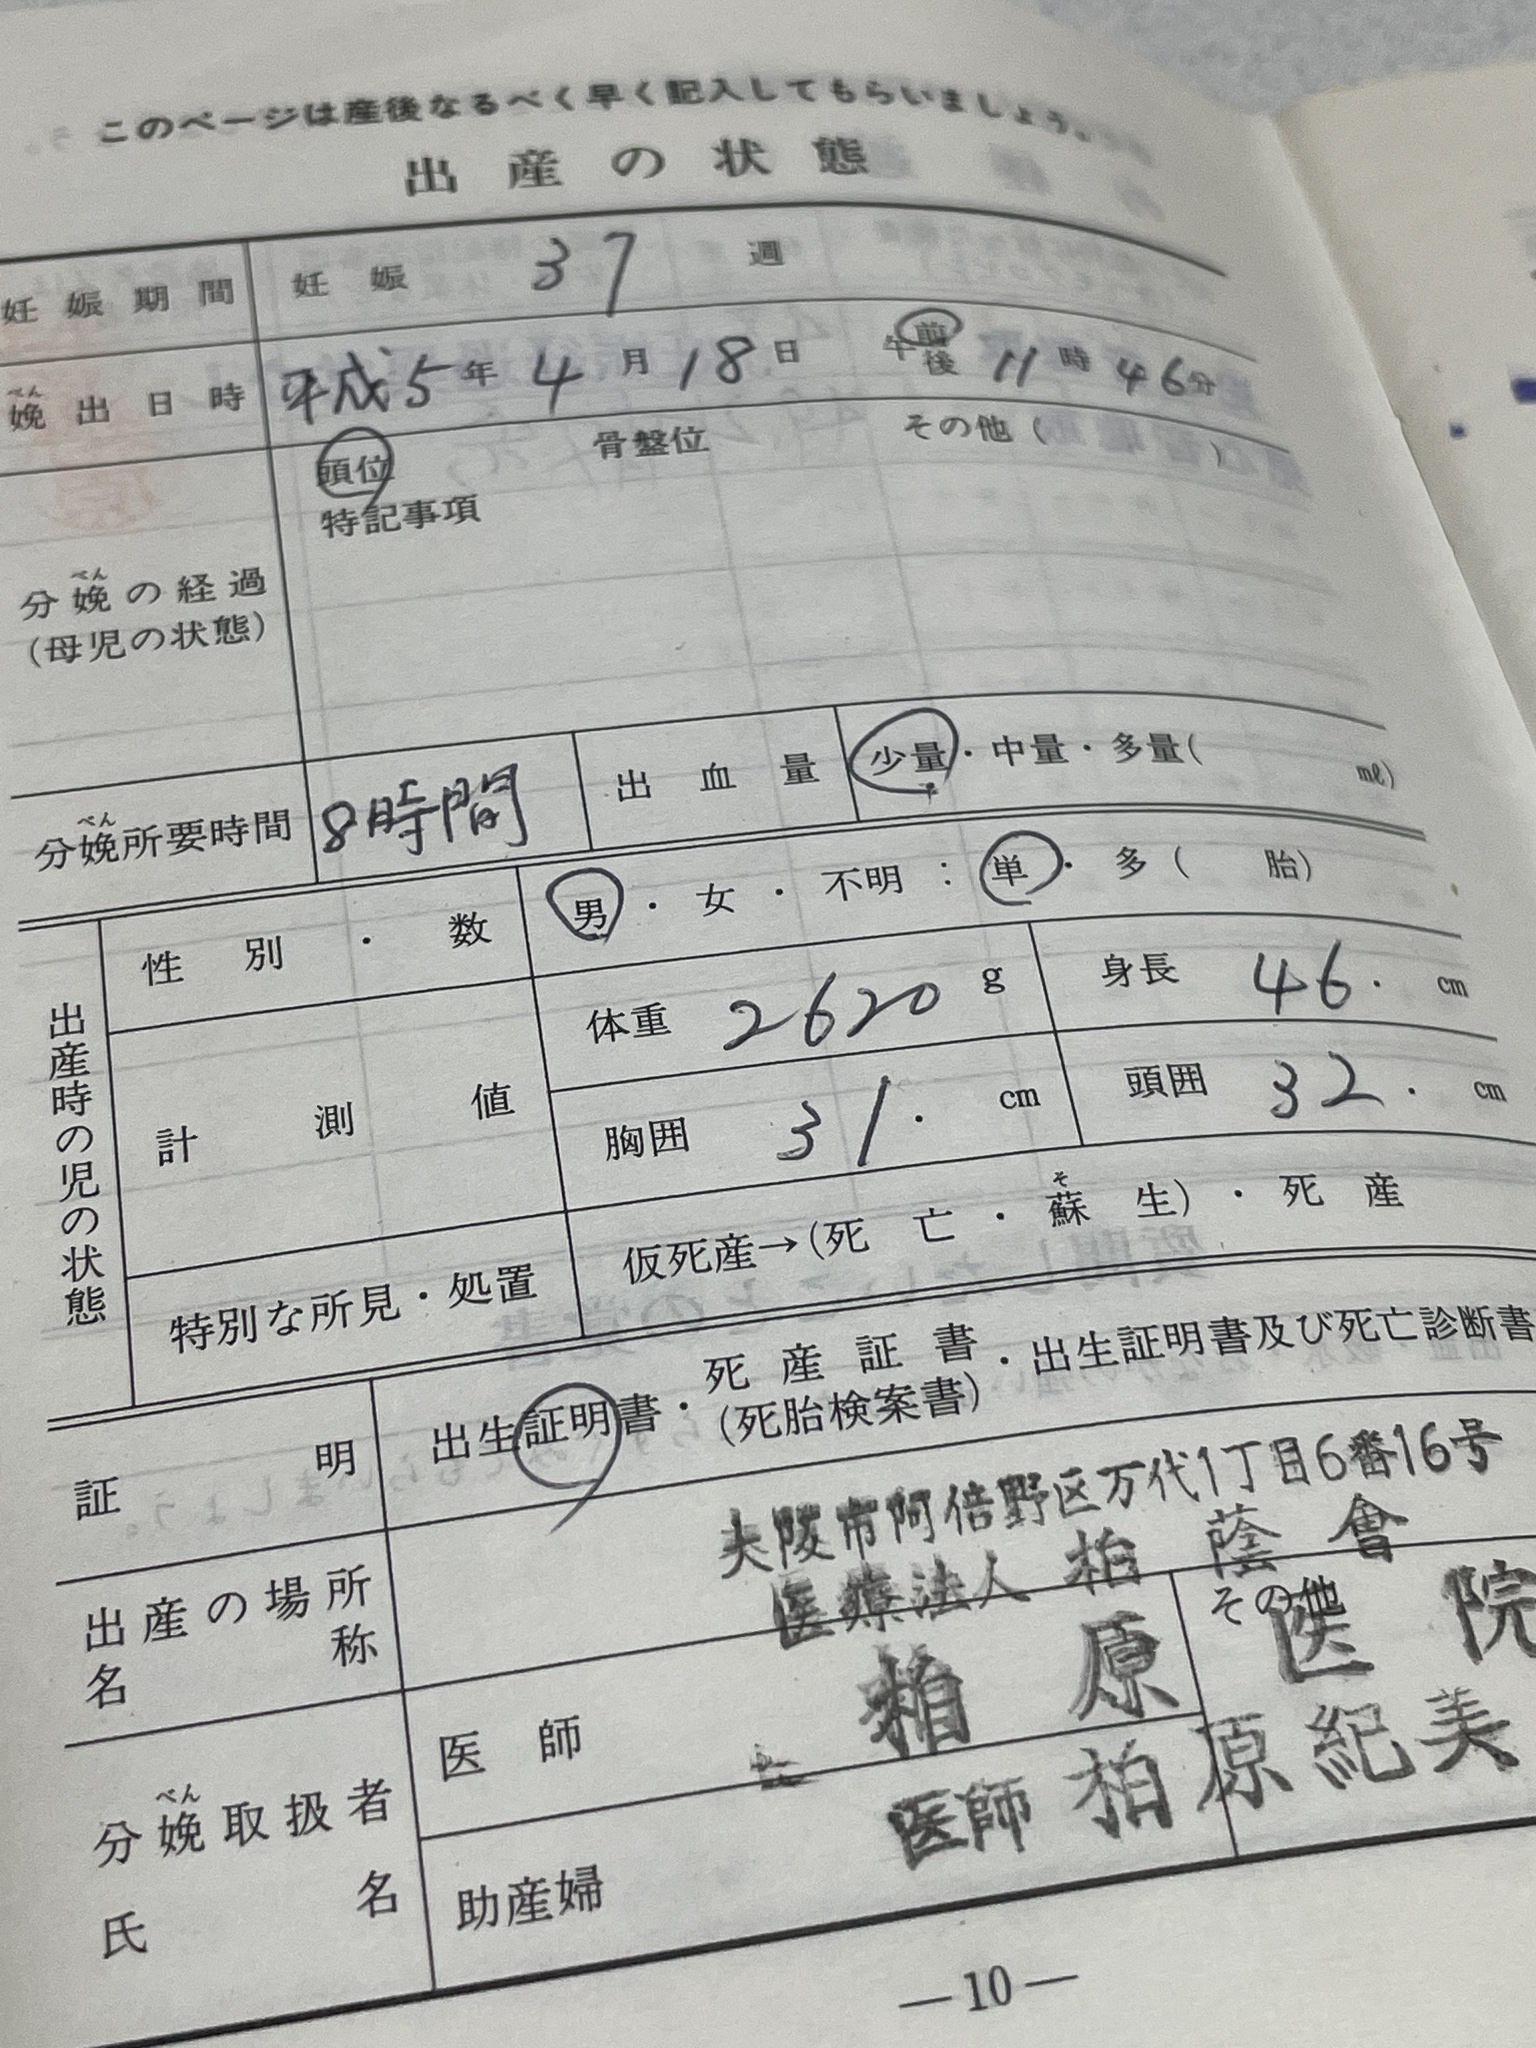 このページは産後なるべく早く記入してもらいましょう。
出産の状態
妊娠期間 妊娠 37 週
娩出日時 平成5年4月18日 午前後 11時46分
べん
頭位 骨盤位 その他( )
特記事項
分娩の経過
べん
(母児の状態)
分娩所要時間 8時間 出血量 少量・中量・多量( ml)
べん
出産時の児の状態
性別・数 男・女・不明:単・多( 胎)
計測値 体重 2620 g 身長 46. cm
胸囲 31. cm 頭囲 32. cm
特別な所見・処置 仮死産→(死亡・蘇生)・死産
そ
証明 出生証明書・死産証書(死胎検案書)・出生証明書及び死亡診断書
出産の場所
名称
大阪市阿倍野区万代1丁目6番16号
医療法人 柏蔭會
柏原医院
その他
分娩取扱者
べん
氏名
医師
医師 柏原紀美
助産婦
—10—